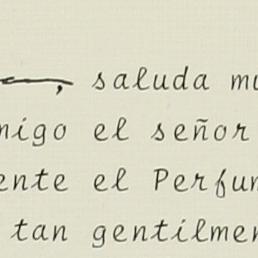 , saluda mu
migo el señor
ente el Perfum
tan gentilmen